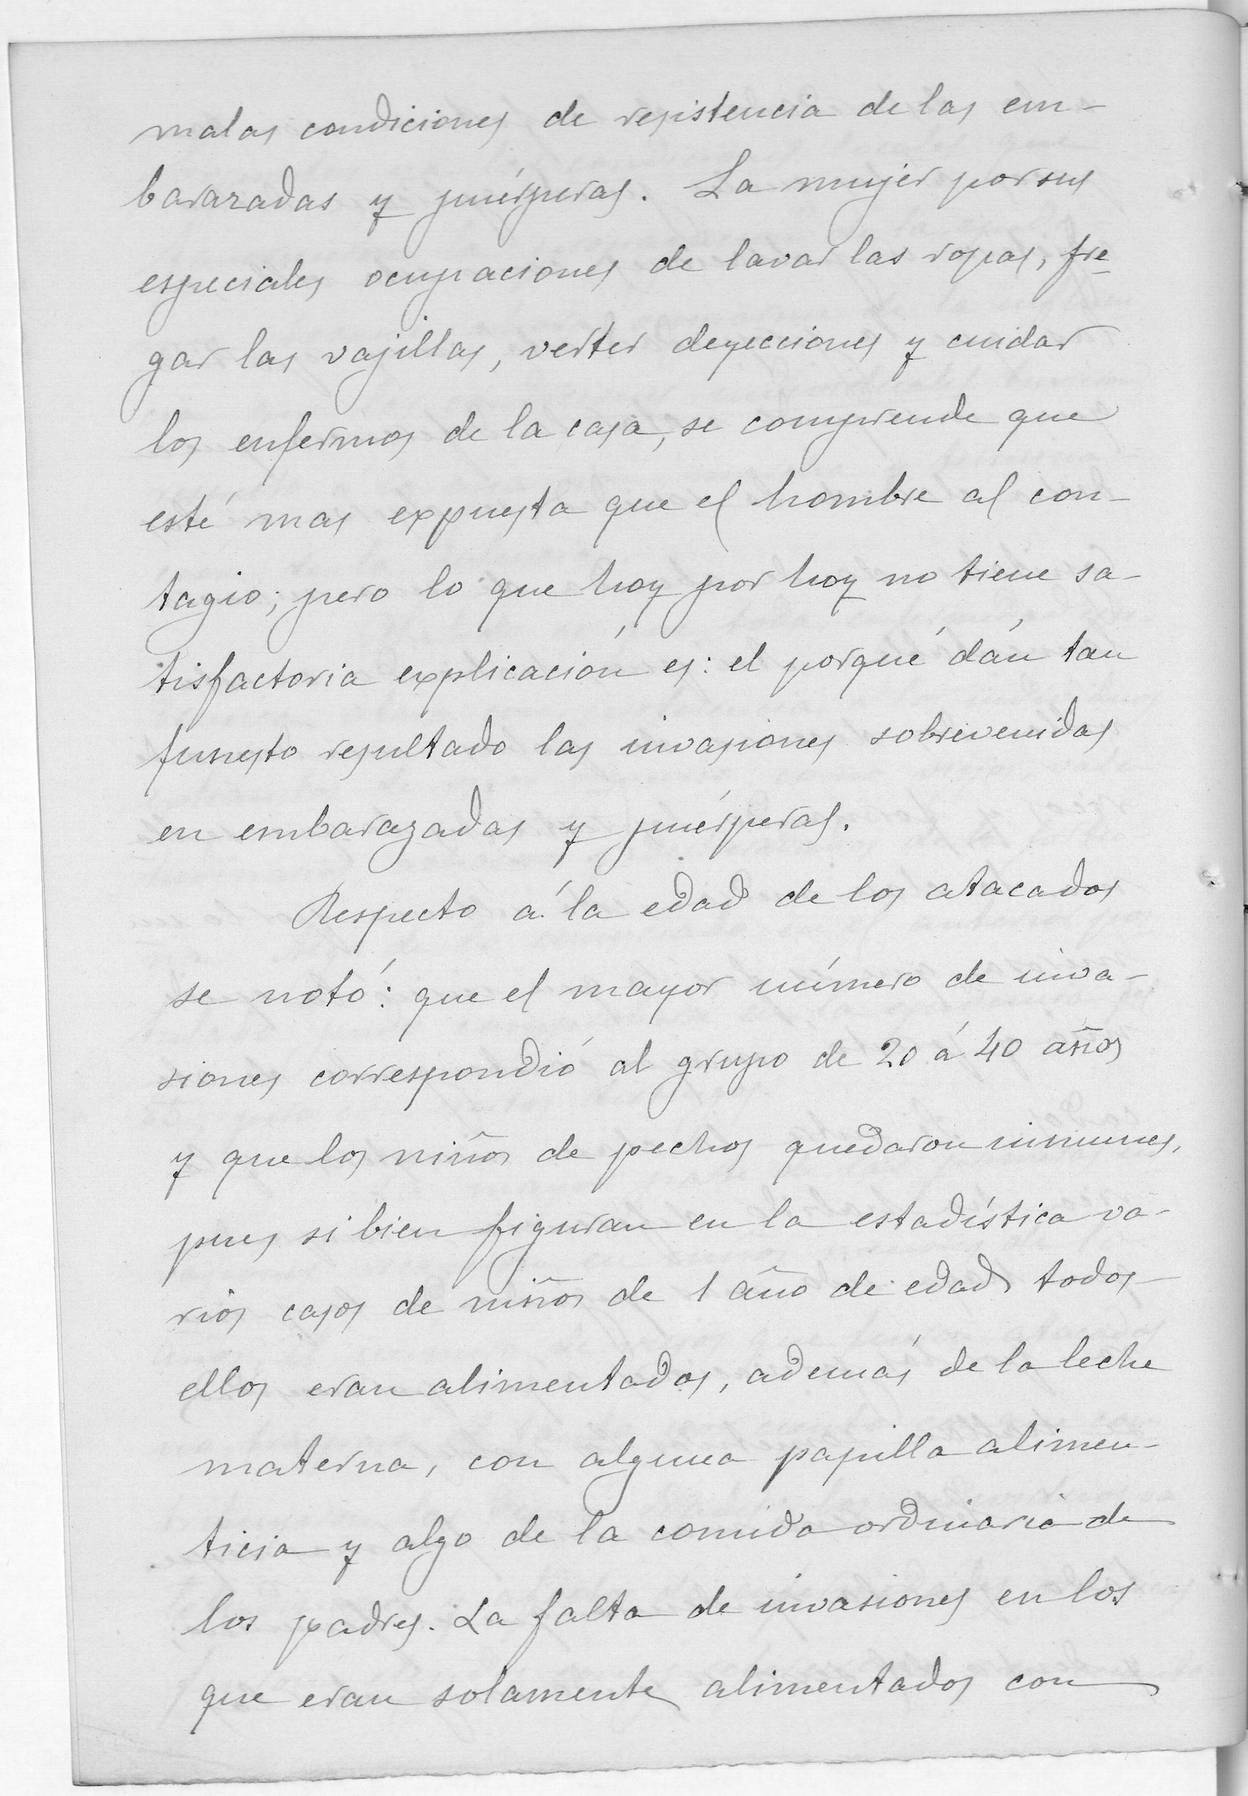 malas condiciones de resistencia de las em-
barazadas y puérperas. La mujer por sus
especiales ocupaciones de lavar las ropas, fre-
gar las vajillas, verter deyecciones y cuidar
los enfermos de la casa, se comprende que
esté mas expuesta que el hombre al con-
tagio; pero lo que hoy por hoy no tiene sa-
tisfactoria explicación es: el porqué dán tan
funesto resultado las invasiones sobrevenidas
en embarazadas y puérperas.
Respecto á la edad de los atacados
se notó: que el mayor número de inva-
siones correspondió al grupo de 20 á 40 años
y que los niños de pechos quedaron inmunes,
pues si bien figuran en la estadística va-
rios casos de niños de 1 año de edad todos
ellos eran alimentados, además de la leche
materna, con alguna papilla alimen-
ticia y algo de la comida ordinaria de
los padres. La falta de invasiones en los
que eran solamente alimentados con